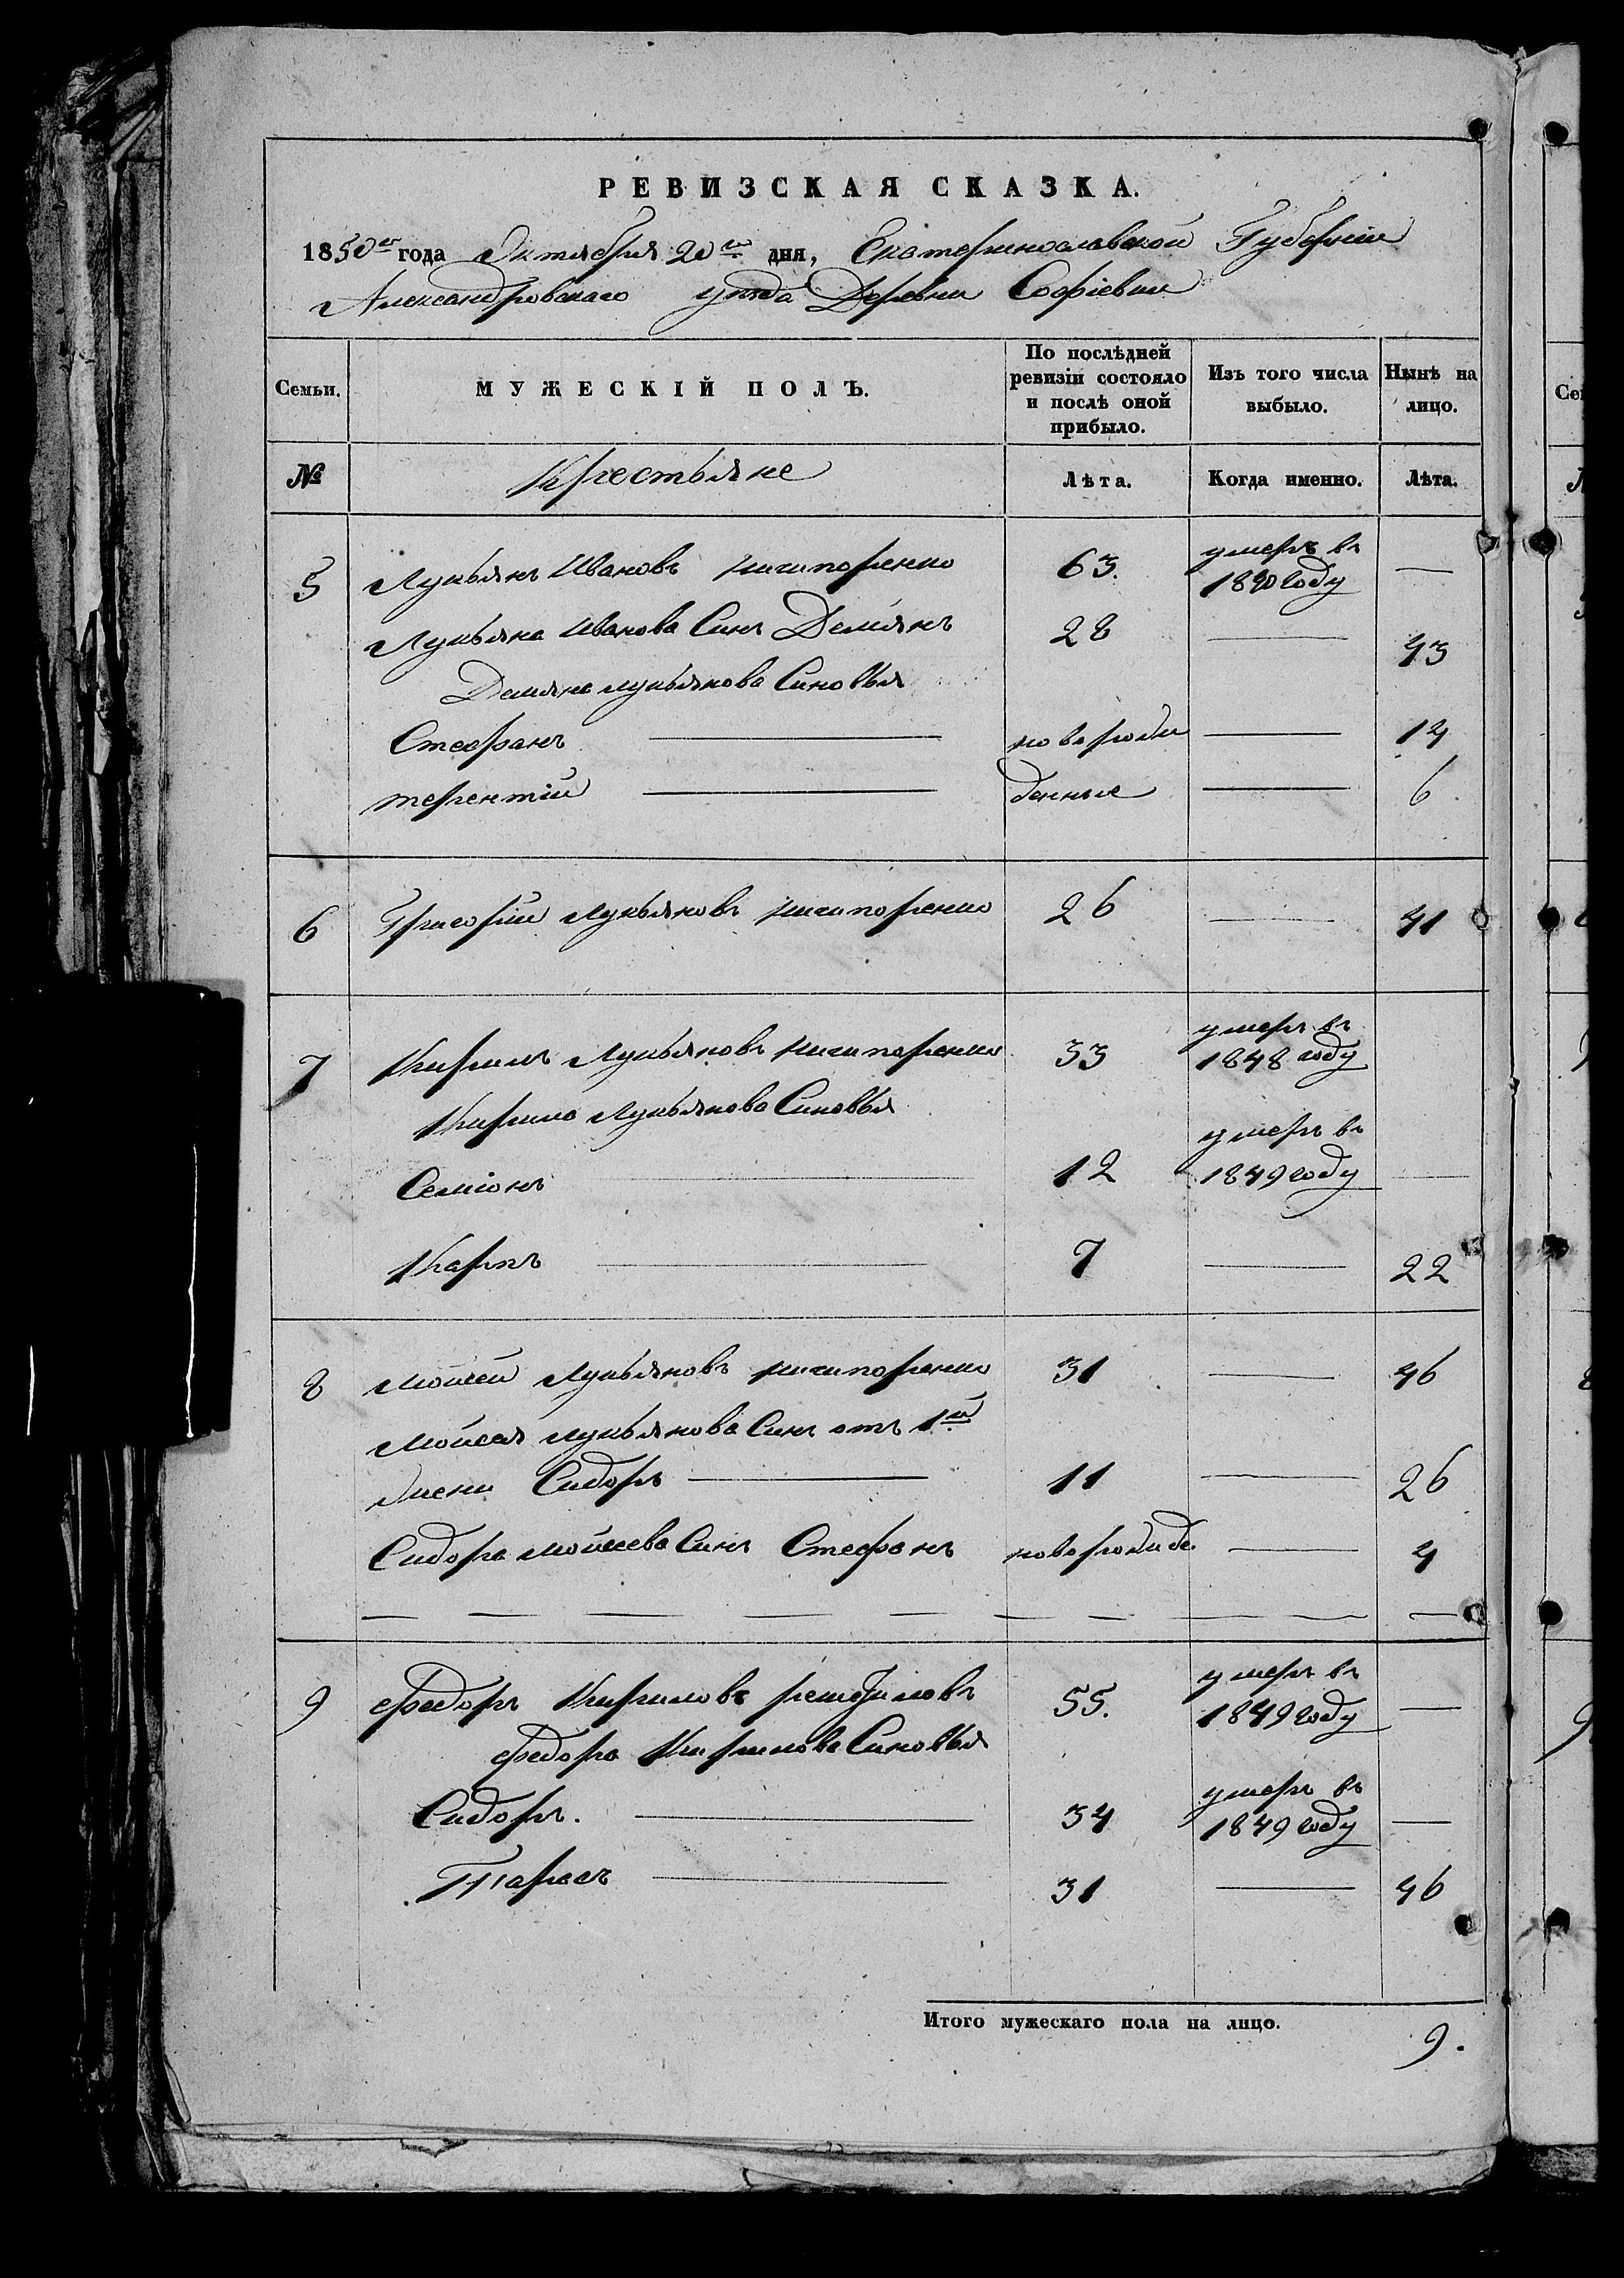 РЕВИЗСКАЯ СКАЗКА.
1850го года Октября 20го дня, Екатеринославской Губерніи
Александровскаго уезда Деревни Софіевки
Семьи. МУЖЕСКІЙ ПОЛЪ. По послѣдней ревизіи состояло и послѣ оной прибыло. Изъ того числа выбыло. Нынѣ на лицо.
№ Крестьяне Лѣта. Когда именно. Лѣта.
5 Лукьянъ Ивановъ Ничипоренко 63. умеръ въ 1840 году —
Лукьяна Иванова Синъ Демянъ 28 — 43
Демяна Лукьянова Синовья
Стефанъ — новорож — 14
терентій — денные — 6
6 Григорій Лукьяновъ Ничипоренко 26 — 41
7 Кирилъ Лукьяновъ Ничипоренко 33 умеръ въ 1848 году
Кирила Лукьянова Синовья
Семіонъ — 12 умеръ въ 1849 году —
Карпъ — 7 — 22
8 Мойсей Лукьяновъ Ничипоренко 31 — 46
Мойсея Лукьянова Синъ отъ 1й
жени Сидоръ — 11 — 26
Сидора Мойсеева Синъ Стефанъ новорожде. — 4
9 Федоръ Кириловъ 55. умеръ въ 1849 году —
Федора Кирилова Синовья
Сидоръ. — 34 умеръ въ 1849 году —
Тарасъ — 31 — 46
Итого мужескаго пола на лицо. 9.
Се